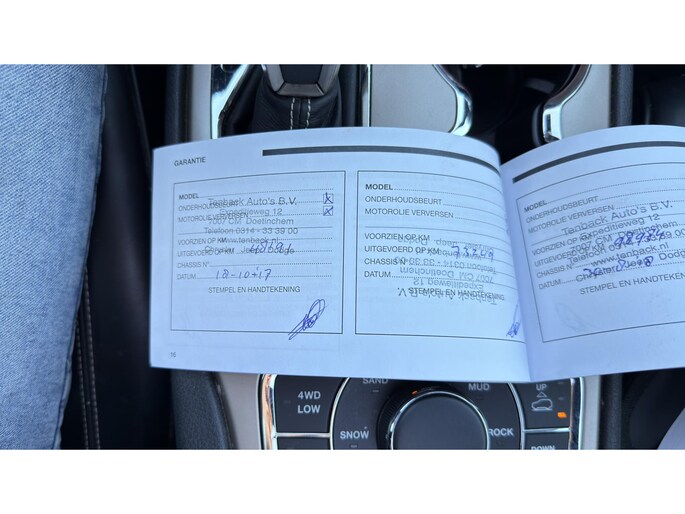 GARANTIE
MODEL
ONDERHOUDSBEURT
MOTOROLIE VERVERSEN
Tenback Auto's B.V.
Expeditieweg 12
7007 CM Doetinchem
Telefoon 0314 - 33 39 00
www.tenback.nl
VOORZIEN OP KM
UITGEVOERD OP KM
CHASSIS N°
DATUM 18-10-17
STEMPEL EN HANDTEKENING
16
MODEL
ONDERHOUDSBEURT
MOTOROLIE VERVERSEN
VOORZIEN OP KM
UITGEVOERD OP KM
CHASSIS N°
DATUM
Telefoon 0314 - 33 39 00
7007 CM Doetinchem
Expeditieweg 12
Tenback Auto's B.V.
STEMPEL EN HANDTEKENING
MODEL
ONDERHOUDSBEURT
MOTOROLIE VERVERSEN
Tenback Auto's B.V.
Expeditieweg 12
7007 CM Doetinchem
VOORZIEN OP KM
UITGEVOERD OP KM
CHASSIS N°
DATUM
STEMPEL EN HANDTEKENING
4WD
LOW
SAND
MUD
SNOW
ROCK
UP
DOWN